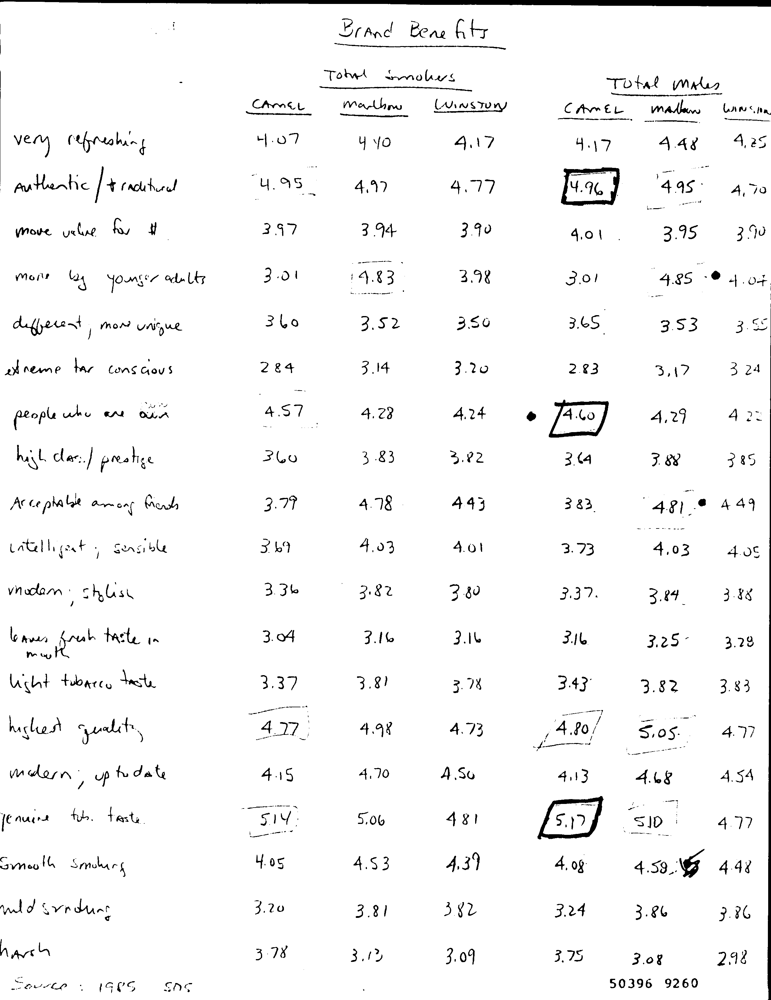 Brand Benefits
Total Smokers Total Males
CAMEL Marlboro WINSTON CAMEL Marlboro WINSTON
very refreshing 4.07 4.40 4.17 4.17 4.48 4.25
Authentic/traditional 4.95 4.97 4.77 4.96 4.95 4.70
more value for $ 3.97 3.94 3.90 4.01 3.95 3.90
more by younger adults 3.01 4.83 3.98 3.01 4.85 4.04
different, more unique 3.60 3.52 3.50 3.65 3.53 3.55
extreme tar conscious 2.84 3.14 3.20 2.83 3.17 3.24
people who are own 4.57 4.28 4.24 4.60 4.29 4.22
high class/prestige 3.60 3.83 3.82 3.64 3.88 3.85
Acceptable among friends 3.79 4.78 4.43 3.83 4.81 4.49
intelligent, sensible 3.69 4.03 4.01 3.73 4.03 4.05
modern; stylish 3.36 3.82 3.80 3.37 3.84 3.88
leaves fresh taste in 3.04 3.16 3.16 3.16 3.25 3.28
mouth
light tobacco taste 3.37 3.81 3.78 3.43 3.82 3.83
highest quality 4.77 4.98 4.73 4.80 5.05 4.77
modern; up to date 4.15 4.70 4.56 4.13 4.68 4.54
genuine tob. taste 5.14 5.06 4.81 5.17 5.10 4.77
Smooth smoking 4.05 4.53 4.39 4.08 4.59 4.48
mild smoking 3.20 3.81 3.82 3.24 3.86 3.86
harsh 3.78 3.13 3.09 3.75 3.08 2.98
Source: 1985 SDS
50396 9260